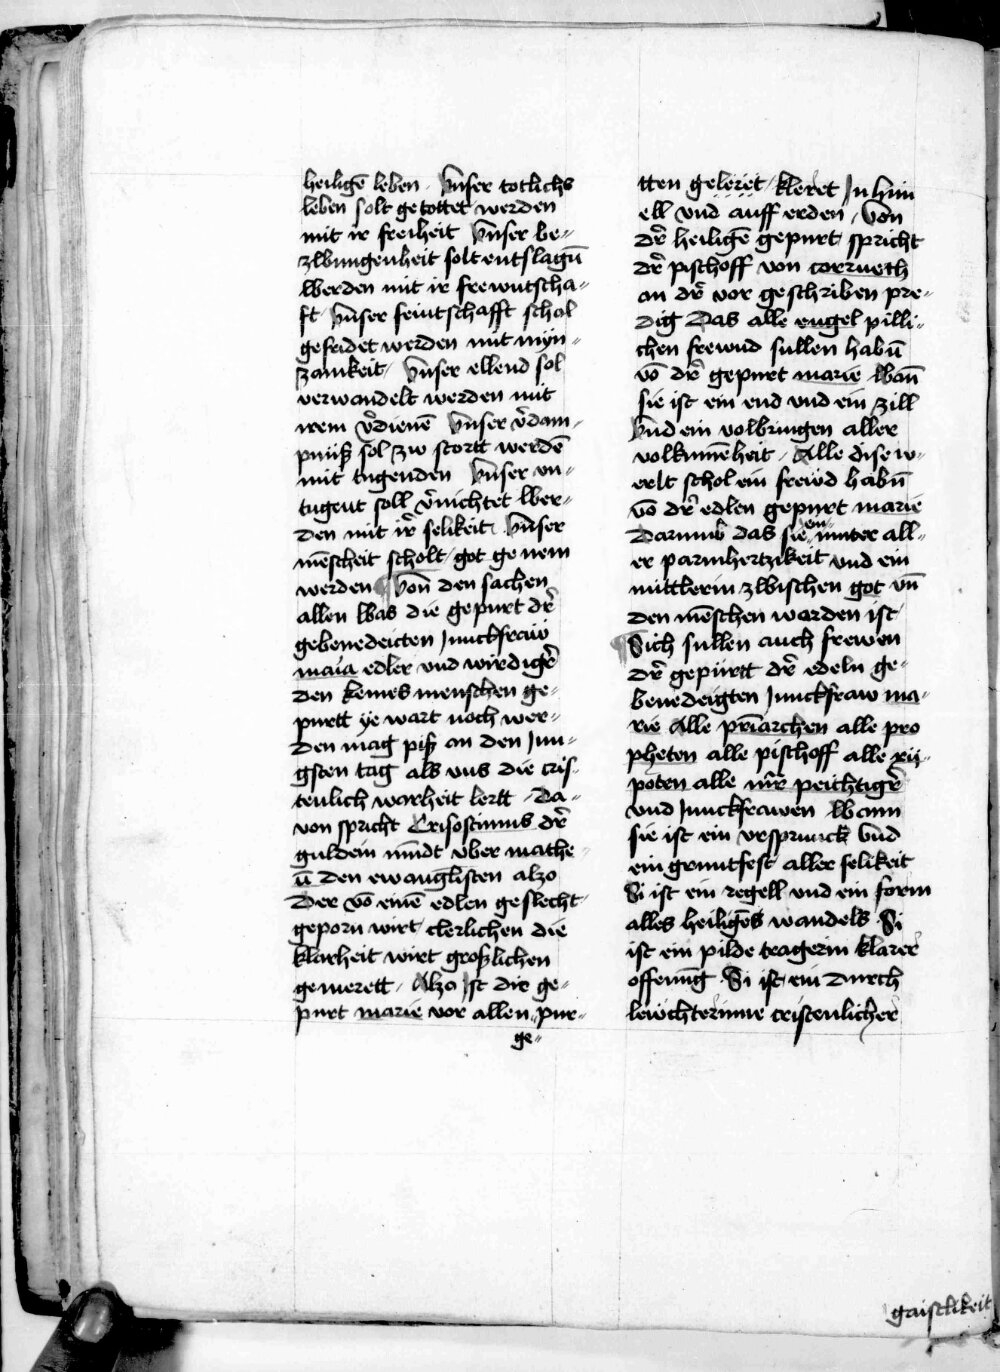 heiligē leben · Vnser totlichs
leben solt getottet werden
mit ir freiheit Vnser be„
zwungenheit solt entslagn̄
werden mit ir frewntscha„
ft · Vnser feintschafft schol
gefridet werden mit myn„
zamkeit / Vnser ellend sol
verwandelt werden mit
irem v̄dienē Vnser v̄dam„
pnüß sol zw stortt werdē
mit tugenden Vnser vn„
tugent soll v̄nichtet wer„
den mit ir̄ selikeit · Vnser
mēscheit scholt / got genem
werden Von den sachen
allen was die gepurt dr̄
gebenedeicten Junckfraw
maria edler vnd wirdigr̄
den keines menschen ge„
purtt ye wart noch wer„
den mag piß an den Jun„
gsten tag als vns die cris„
tenlich warheit lertt · Da„
von spricht Crisostimus dr̄
guldein mūdt vber mathe„
ū den ewanglisten alzo
Der vō einē edlen geslecht
geporn wirt clerlichen die
klarheit wirt groslichen
gemerett · Alzo Ist die ge„
purt marie vor allen pur„
ge„
tten geleret / kleret Jn him
ell vnd auff erden / Von
dr̄ heiligē gepurt spricht
dr̄ pischoff von corrneth
an dr̄ vor geschriben pre„
dig Das alle engel pilli„
chen frewnd sullen habn̄
vō dr̄ gepurt marie wan̄
sie ist ein end vnd ein zill
Vnd ein volbringen aller
volkumēheit / Alle dise w„
erlt schol ein frewd habn̄
vō dr̄ edlen gepurt marie
Darumb das sie ein muter all„
er parmhertzikeit vnd ein
mittlerin zwischen got vn̄
den mēschen worden ist
Sich sullen auch frewen
dr̄ gepurtt dr̄ edeln ge„
benedeigten Junckfraw ma„
rie Alle pr̄iarchen alle pro
pheten alle pischoff alle xij
poten alle mr̄r peichtigr̄
vnd Junckfrawen wann
sie ist ein vrsprunck vnd
ein gruntfest aller selikeit
Si ist ein regell vnd ein form
alles heiligēs wandels · Si
ist ein pilde tragerin klarer
offenūg · Si ist ein durch
lewchterinne cristenlicher
gaistlikeit